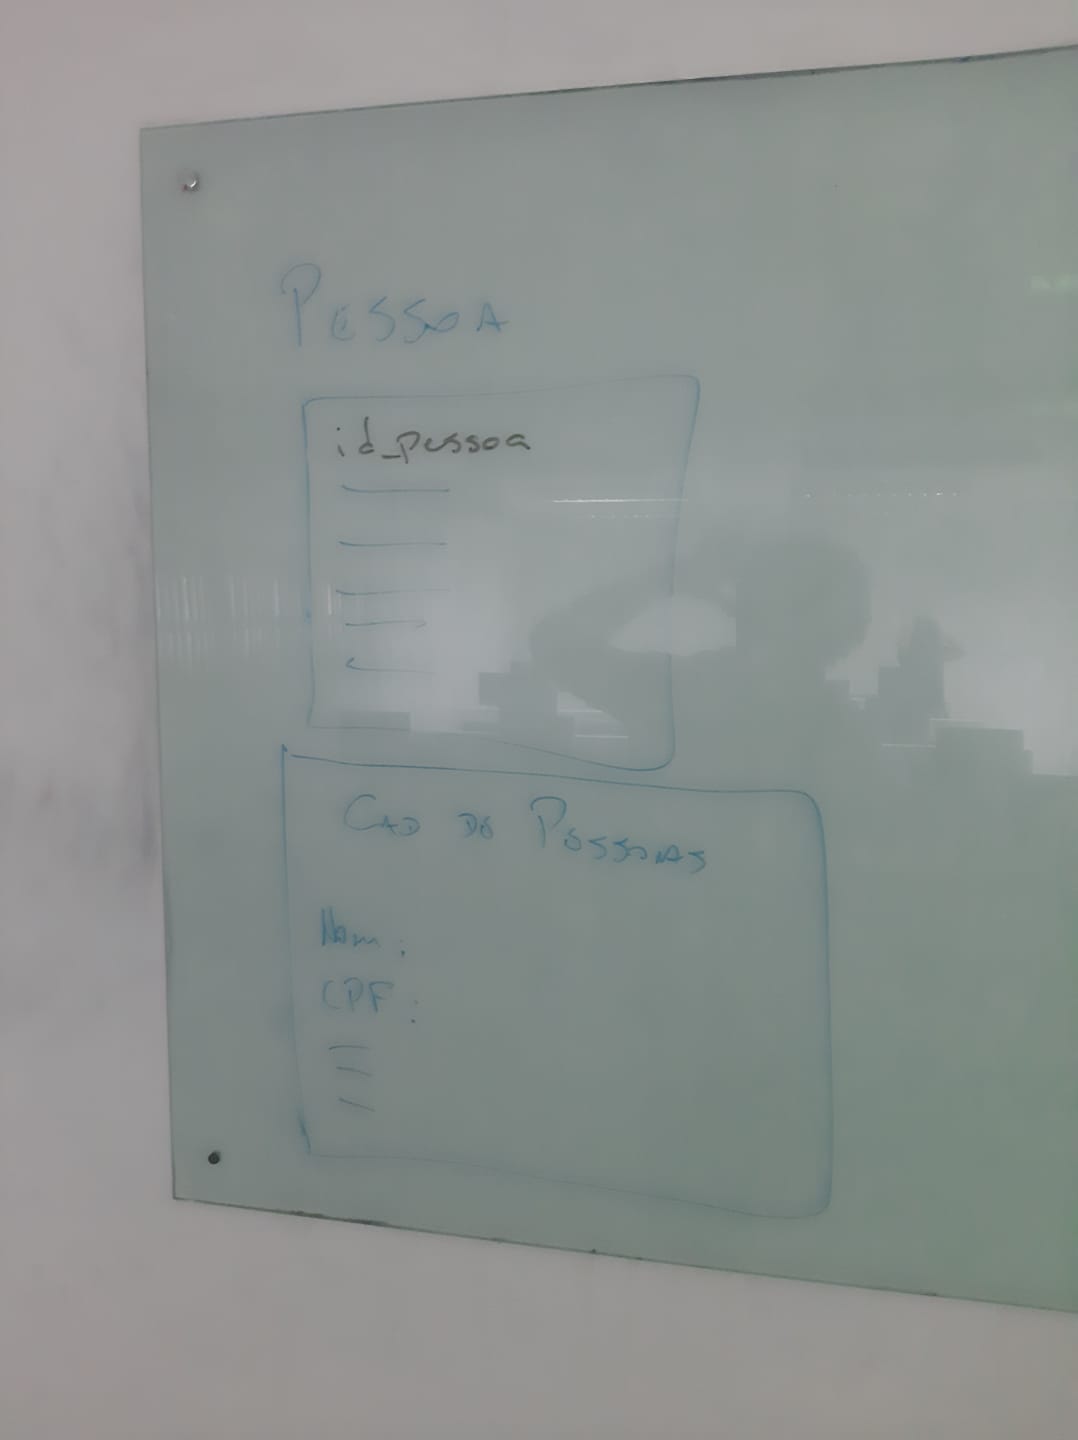 PESSOA
id_pessoa
CAD DE PESSOAS
Nom:
CPF: